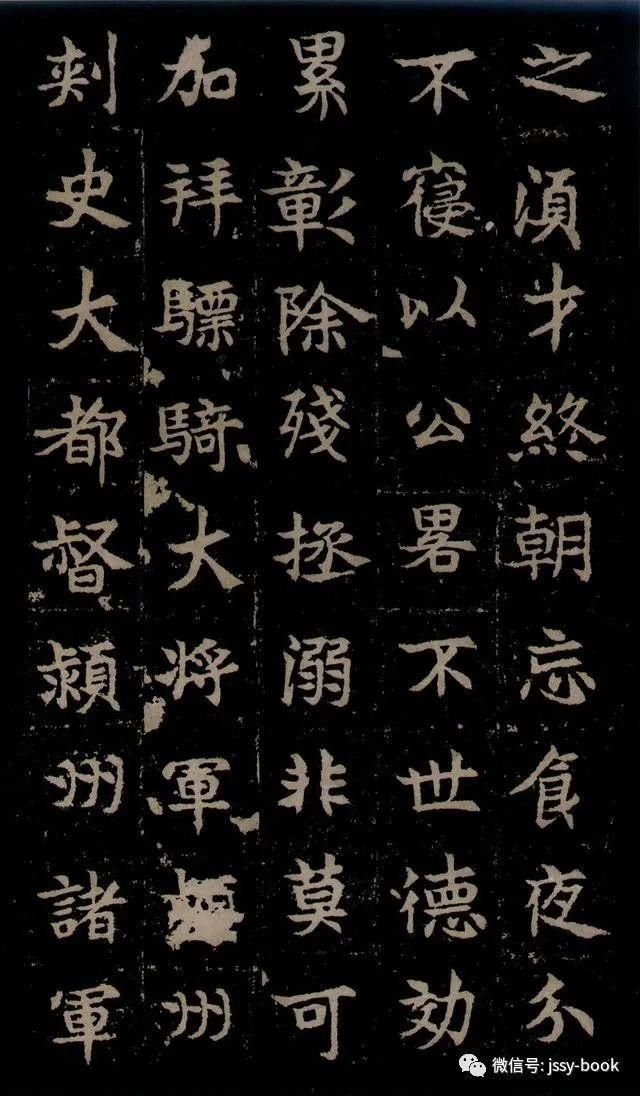 之湏才終朝忘食夜分
不寑以公畧不世德効
累彰除殘拯溺非莫可
加拜驃騎大將軍潁州
刺史大都督潁州諸軍
微信号: jssy-book